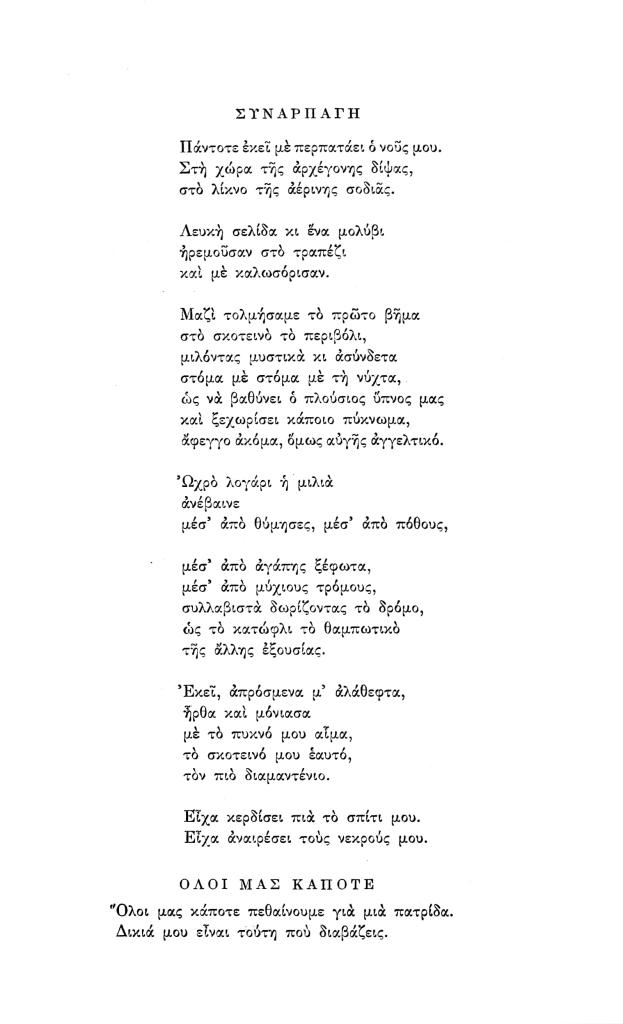 ΣΥΝΑΡΠΑΓΗ
Πάντοτε ἐκεῖ μὲ περπατάει ὁ νοῦς μου.
Στὴ χώρα τῆς ἀρχέγονης δίψας,
στὸ λίκνο τῆς ἀέρινης σοδιᾶς.
Λευκὴ σελίδα κι ἕνα μολύβι
ἠρεμοῦσαν στὸ τραπέζι
καὶ μὲ καλωσόρισαν.
Μαζὶ τολμήσαμε τὸ πρῶτο βῆμα
στὸ σκοτεινὸ τὸ περιβόλι,
μιλόντας μυστικὰ κι ἀσύνδετα
στόμα μὲ στόμα μὲ τὴ νύχτα,
ὡς νὰ βαθύνει ὁ πλούσιος ὕπνος μας
καὶ ξεχωρίσει κάποιο πύκνωμα,
ἄφεγγο ἀκόμα, ὅμως αὐγῆς ἀγγελτικό.
Ὠχρὸ λογάρι ἡ μιλιὰ
ἀνέβαινε
μέσ' ἀπὸ θύμησες, μέσ' ἀπὸ πόθους,
μέσ' ἀπὸ ἀγάπης ξέφωτα,
μέσ' ἀπὸ μύχιους τρόμους,
συλλαβιστὰ δωρίζοντας τὸ δρόμο,
ὡς τὸ κατώφλι τὸ θαμπωτικὸ
τῆς ἄλλης ἐξουσίας.
Ἐκεῖ, ἀπρόσμενα μ' ἀλάθεφτα,
ἦρθα καὶ μόνιασα
μὲ τὸ πυκνό μου αἷμα,
τὸ σκοτεινό μου ἑαυτό,
τὸν πιὸ διαμαντένιο.
Εἶχα κερδίσει πιὰ τὸ σπίτι μου.
Εἶχα ἀναιρέσει τοὺς νεκρούς μου.
ΟΛΟΙ ΜΑΣ ΚΑΠΟΤΕ
Ὅλοι μας κάποτε πεθαίνουμε γιὰ μιὰ πατρίδα.
Δικιά μου εἶναι τούτη ποὺ διαβάζεις.